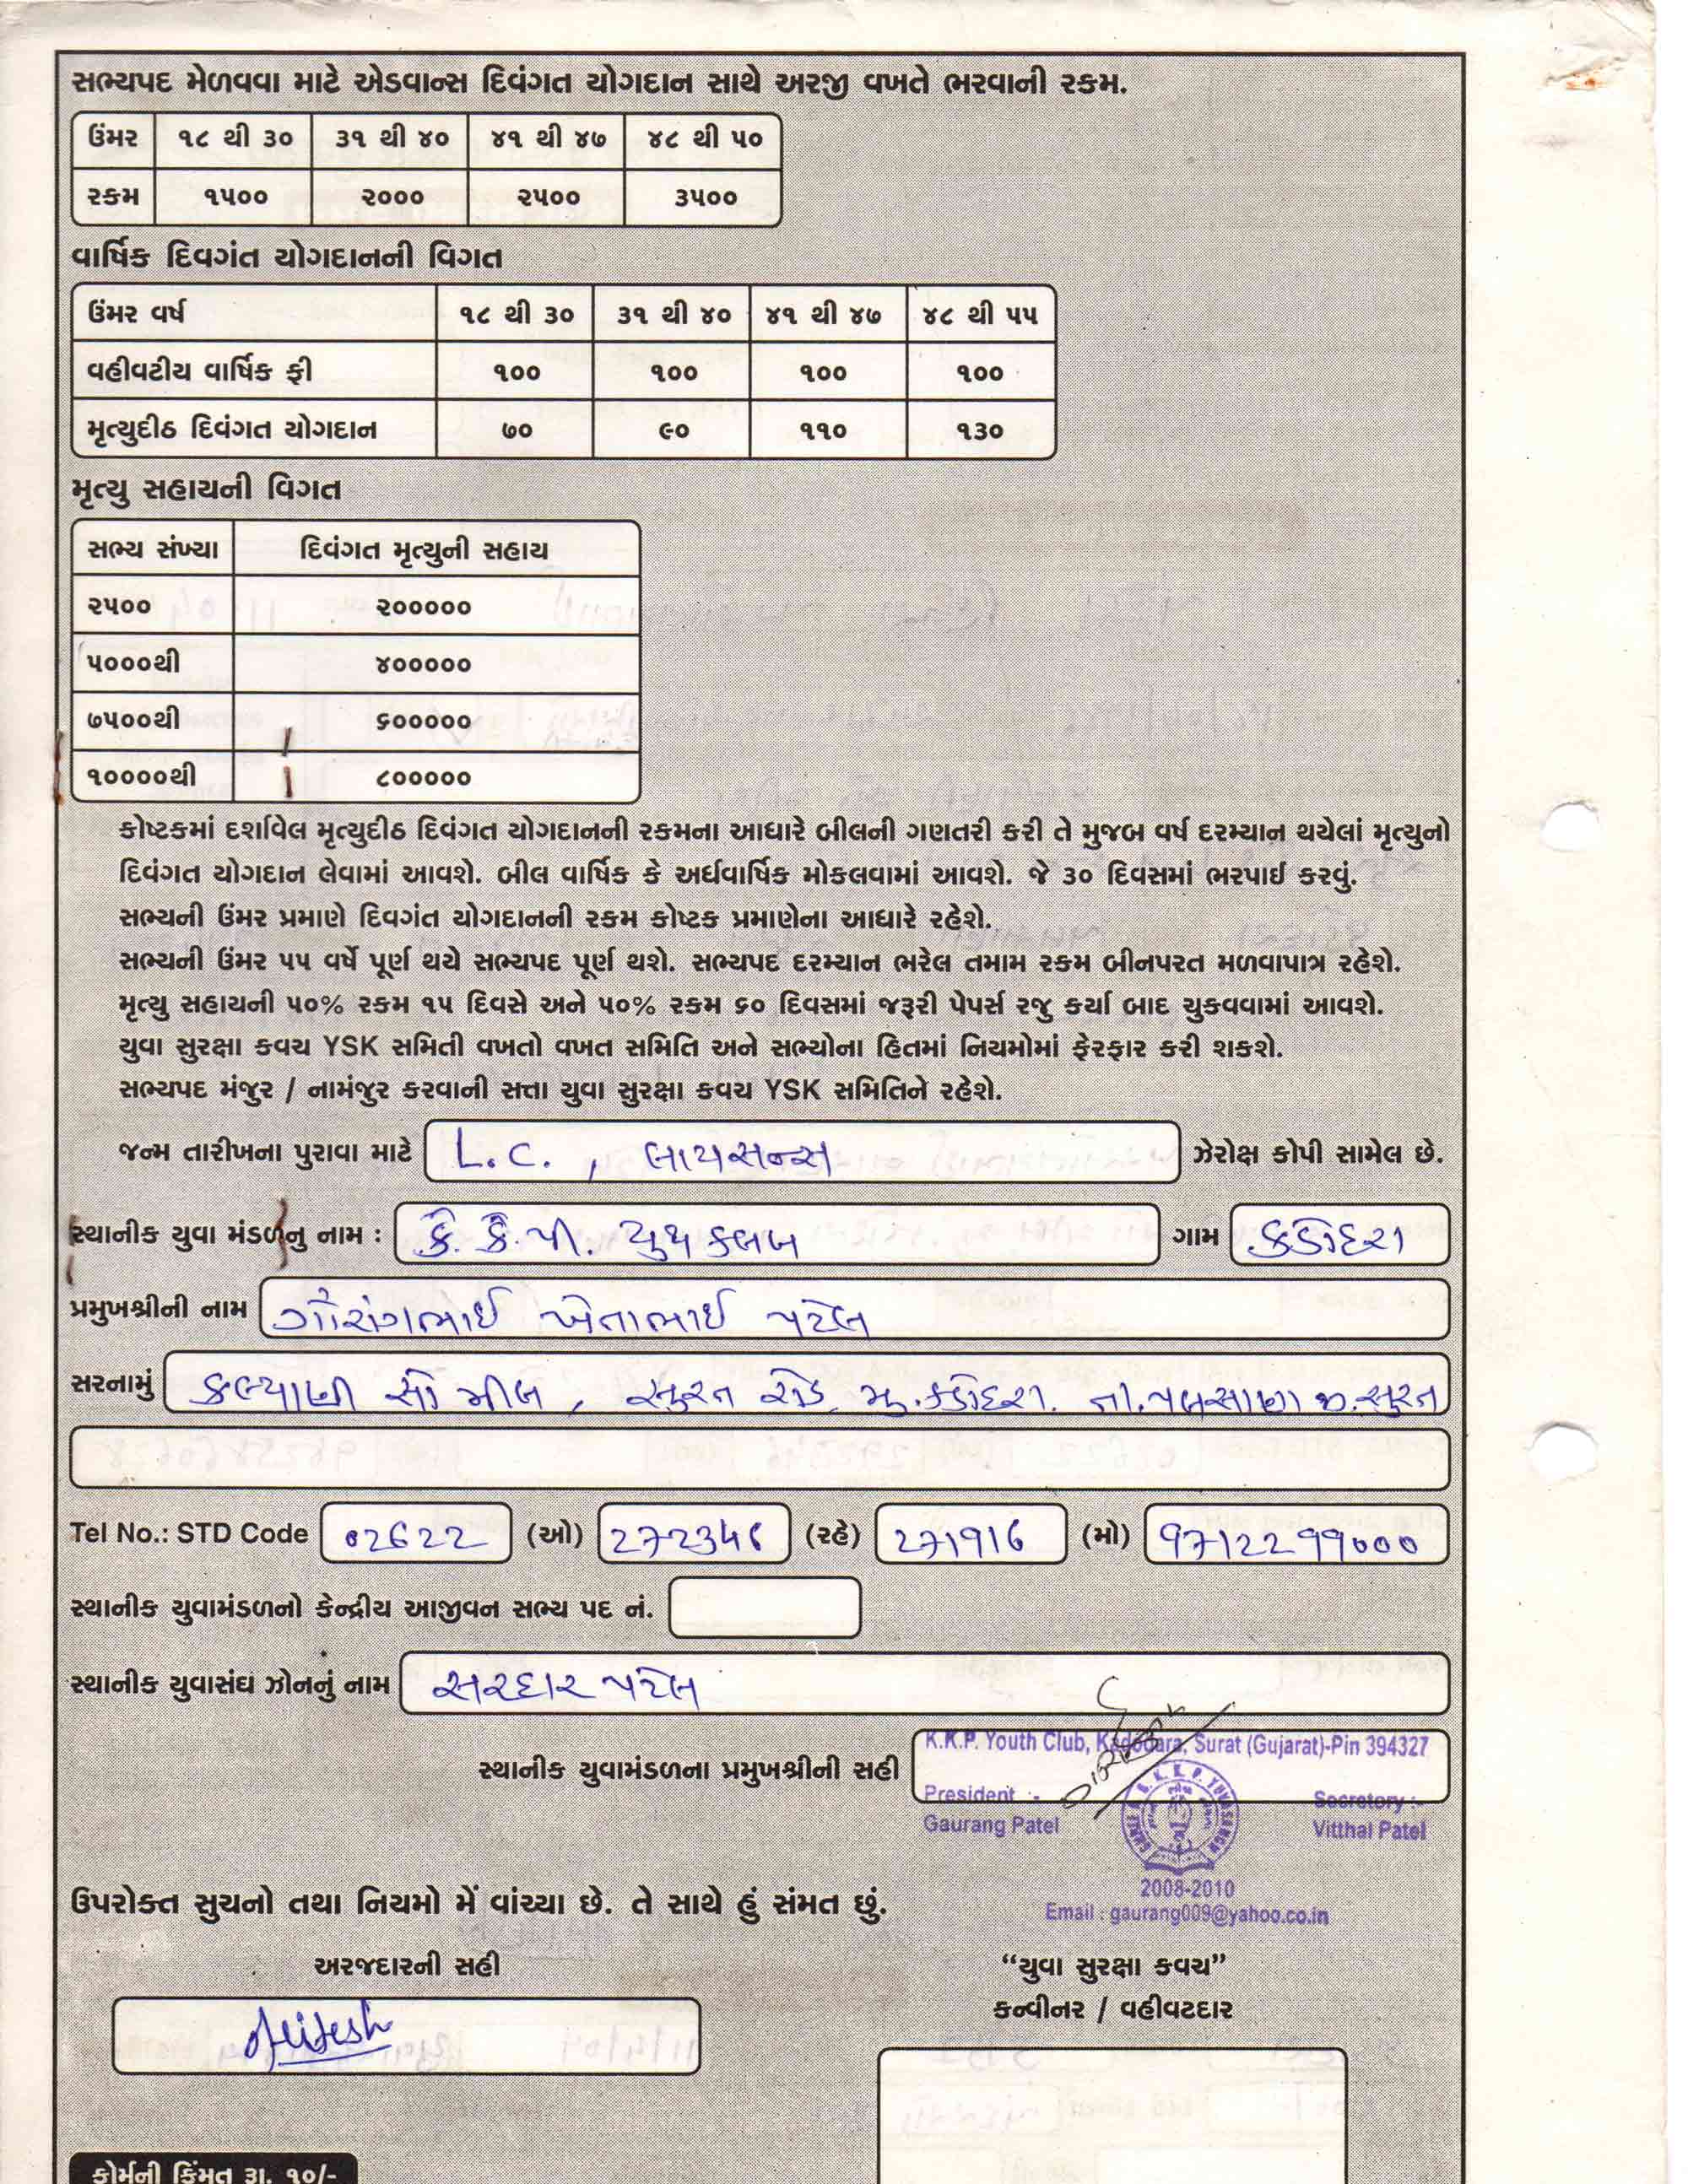 સભ્યપદ મેળવવા માટે એડવાન્સ દિવંગત યોગદાન સાથે અરજી વખતે ભરવાની રકમ.
ઉંમર ૧૮ થી ૩૦ ૩૧ થી ૪૦ ૪૧ થી ૪૭ ૪૮ થી ૫૦
રકમ ૧૫૦૦ ૨૦૦૦ ૨૫૦૦ ૩૫૦૦
વાર્ષિક દિવગંત યોગદાનની વિગત
ઉંમર વર્ષ ૧૮ થી ૩૦ ૩૧ થી ૪૦ ૪૧ થી ૪૭ ૪૮ થી ૫૫
વહીવટીય વાર્ષિક ફી ૧૦૦ ૧૦૦ ૧૦૦ ૧૦૦
મૃત્યુદીઠ દિવંગત યોગદાન ૭૦ ૯૦ ૧૧૦ ૧૩૦
મૃત્યુ સહાયની વિગત
સભ્ય સંખ્યા દિવંગત મૃત્યુની સહાય
૨૫૦૦ ૨૦૦૦૦૦
૫૦૦૦થી ૪૦૦૦૦૦
૭૫૦૦થી ૬૦૦૦૦૦
૧૦૦૦૦થી ૮૦૦૦૦૦
કોષ્ટકમાં દર્શાવેલ મૃત્યુદીઠ દિવંગત યોગદાનની રકમના આધારે બીલની ગણતરી કરી તે મુજબ વર્ષ દરમ્યાન થયેલાં મૃત્યુનો
દિવંગત યોગદાન લેવામાં આવશે. બીલ વાર્ષિક કે અર્ધવાર્ષિક મોકલવામાં આવશે. જે ૩૦ દિવસમાં ભરપાઈ કરવું.
સભ્યની ઉંમર પ્રમાણે દિવગંત યોગદાનની રકમ કોષ્ટક પ્રમાણેના આધારે રહેશે.
સભ્યની ઉંમર ૫૫ વર્ષે પૂર્ણ થયે સભ્યપદ પૂર્ણ થશે. સભ્યપદ દરમ્યાન ભરેલ તમામ રકમ બીનપરત મળવાપાત્ર રહેશે.
મૃત્યુ સહાયની ૫૦% રકમ ૧૫ દિવસે અને ૫૦% રકમ ૬૦ દિવસમાં જરૂરી પેપર્સ રજુ કર્યા બાદ ચુકવવામાં આવશે.
યુવા સુરક્ષા કવચ YSK સમિતી વખતો વખત સમિતિ અને સભ્યોના હિતમાં નિયમોમાં ફેરફાર કરી શકશે.
સભ્યપદ મંજુર / નામંજુર કરવાની સત્તા યુવા સુરક્ષા કવચ YSK સમિતિને રહેશે.
જન્મ તારીખના પુરાવા માટે L.C. , લાયસન્સ ઝેરોક્ષ કોપી સામેલ છે.
સ્થાનીક યુવા મંડળનુ નામ : કે. કે. પી. યુથ ક્લબ ગામ કડોદરા
પ્રમુખશ્રીની નામ ગૌરાંગભાઈ ખેતાભાઈ પટેલ
સરનામું કલ્યાણી સો મીલ , સુરત રોડ, મુ.કડોદરા. તા.પલસાણા જી.સુરત
Tel No.: STD Code 02622 (ઓ) 272346 (રહે) 271916 (મો) 9712299000
સ્થાનીક યુવામંડળનો કેન્દ્રીય આજીવન સભ્ય પદ નં.
સ્થાનીક યુવાસંઘ ઝોનનું નામ સરદાર પટેલ
સ્થાનીક યુવામંડળના પ્રમુખશ્રીની સહી
K.K.P. Youth Club, Kadodara, Surat (Gujarat)-Pin 394327
President :- Secretory :-
Gaurang Patel Vitthal Patel
2008-2010
Email : gaurang009@yahoo.co.in
ઉપરોક્ત સુચનો તથા નિયમો મેં વાંચ્યા છે. તે સાથે હું સંમત છું.
અરજદારની સહી "યુવા સુરક્ષા કવચ"
કન્વીનર / વહીવટદાર
ફોર્મની કિંમત રૂા. ૧૦/-